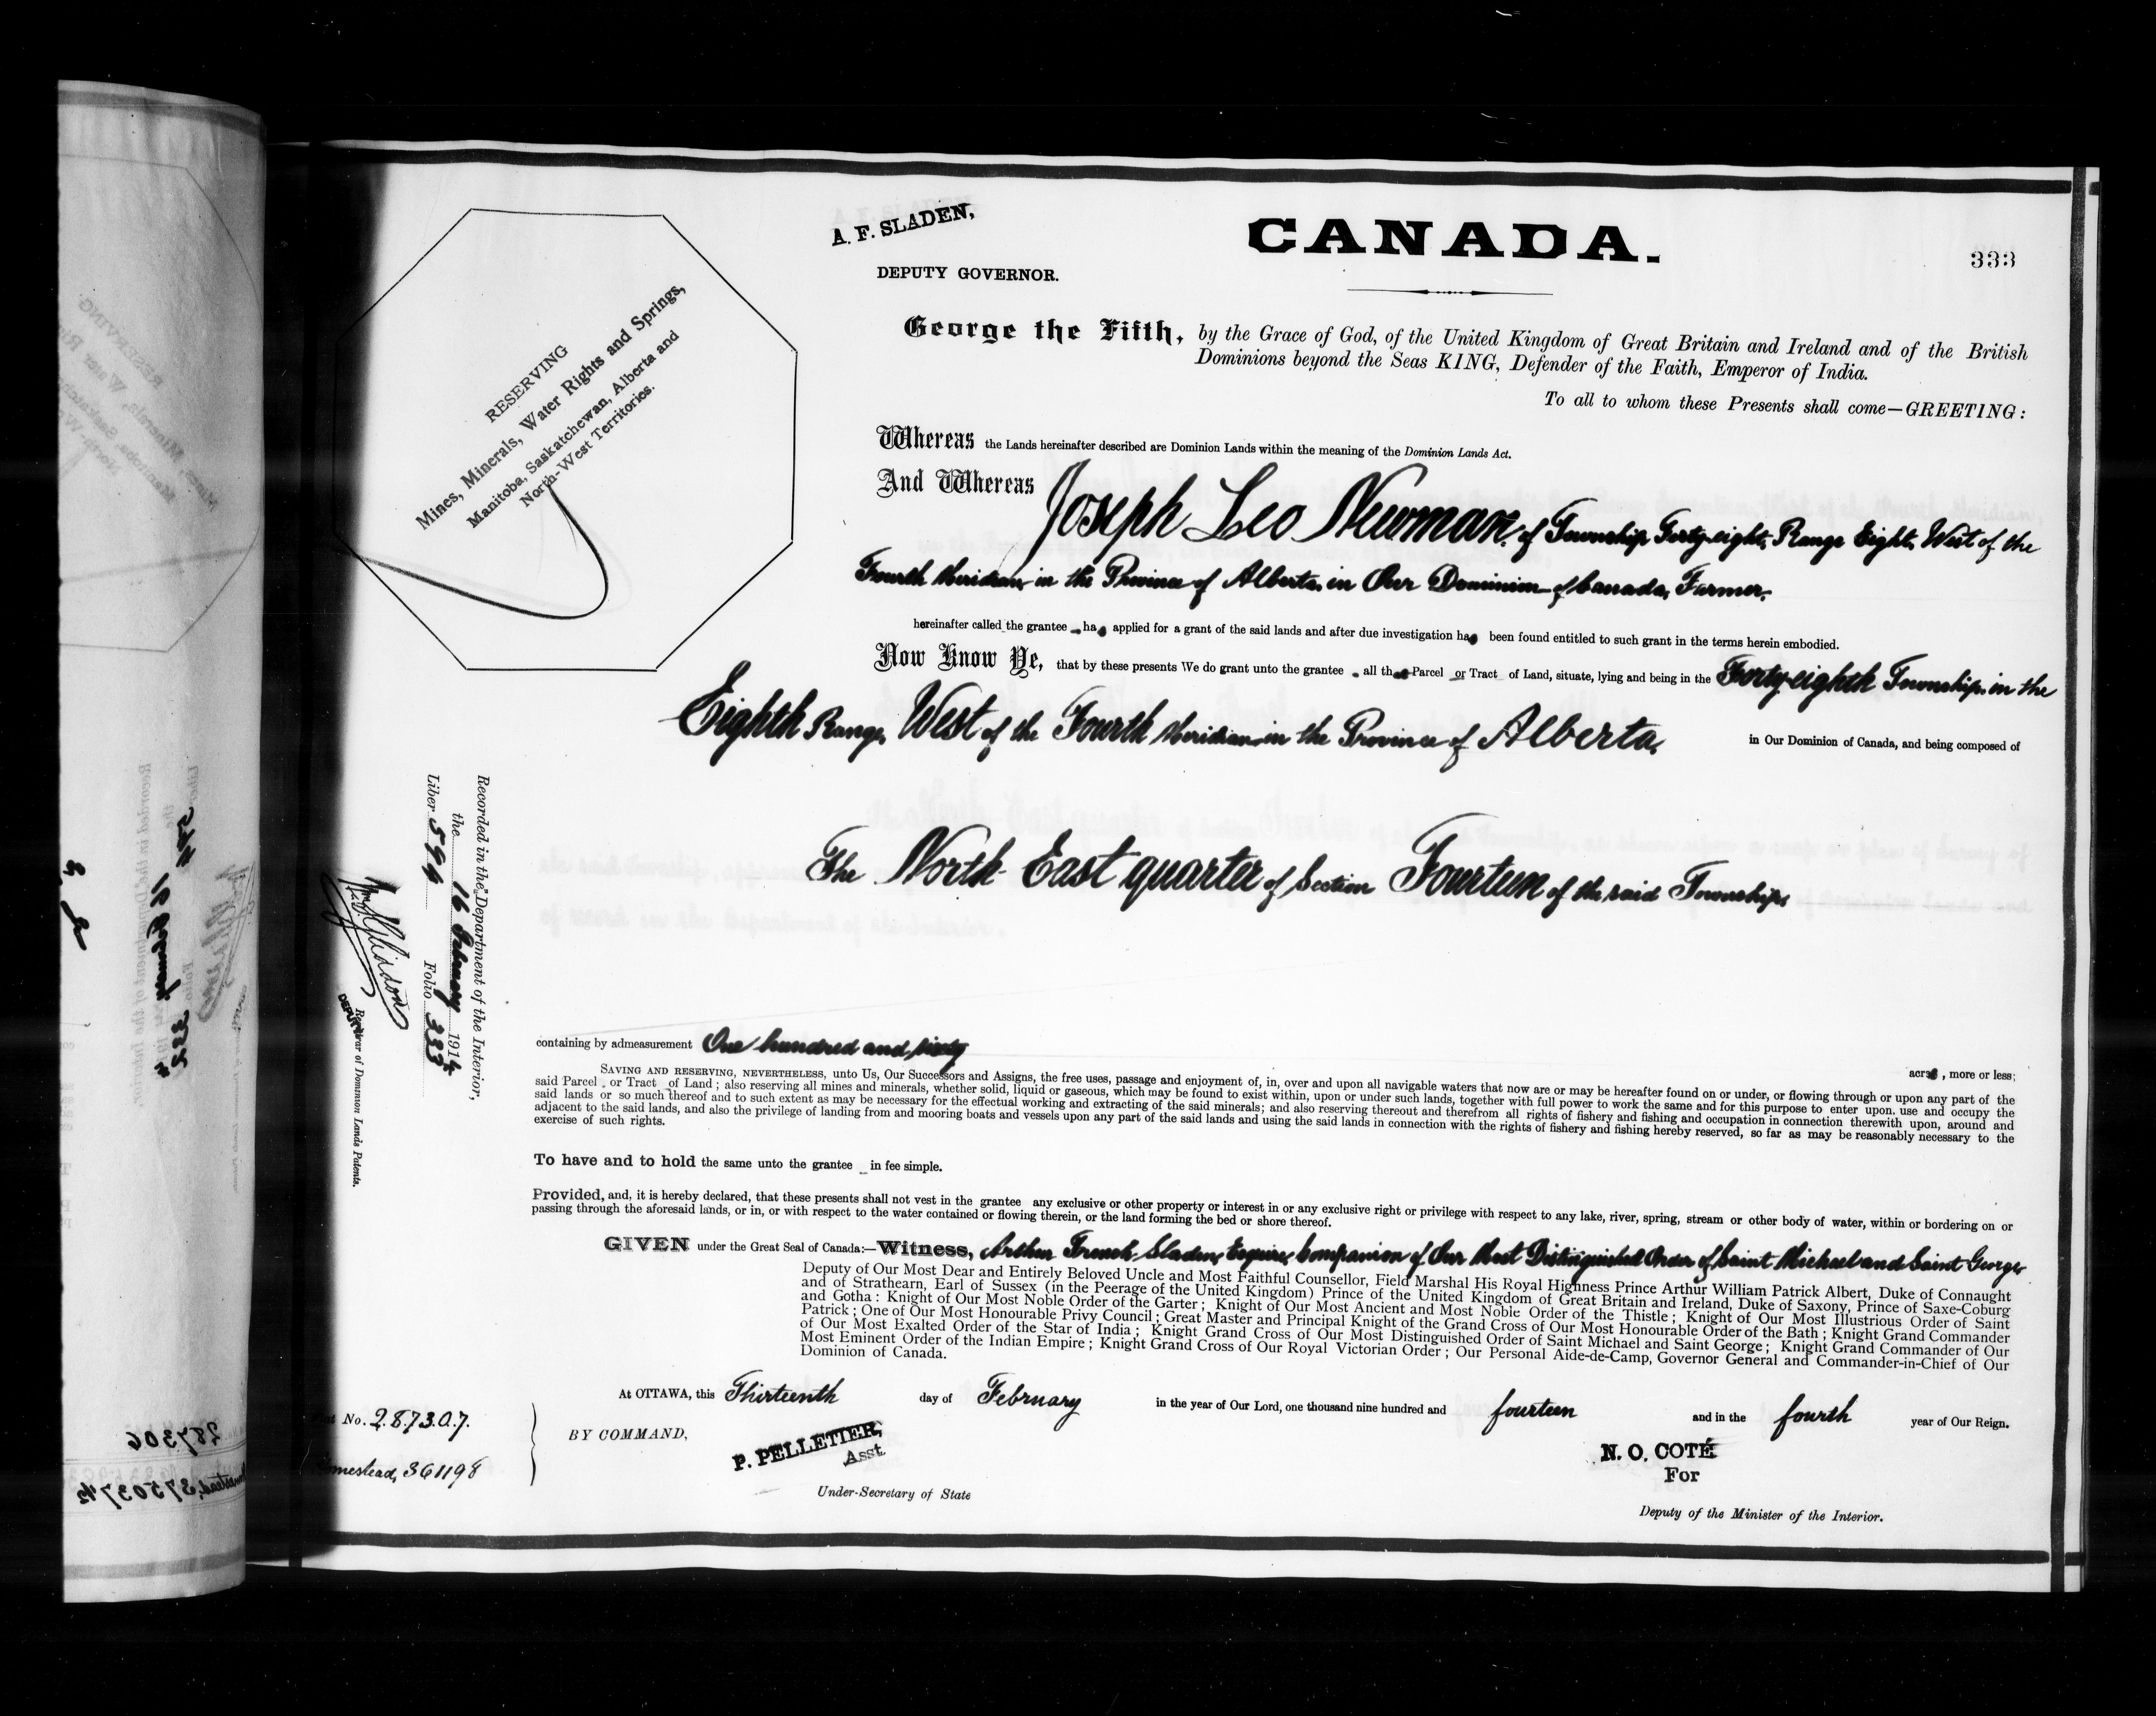 A. F. SLADEN,
DEPUTY GOVERNOR.
CANADA.
333
RESERVING
Mines, Minerals, Water Rights and Springs,
Manitoba, Saskatchewan, Alberta and
North-West Territories.
George the Fifth, by the Grace of God, of the United Kingdom of Great Britain and Ireland and of the British
Dominions beyond the Seas KING, Defender of the Faith, Emperor of India.
To all to whom these Presents shall come—GREETING:
Whereas the Lands hereinafter described are Dominion Lands within the meaning of the Dominion Lands Act.
And Whereas Joseph Leo Newman, of Township Forty-eight, Range Eight, West of the
Fourth Meridian, in the Province of Alberta, in Our Dominion of Canada, Farmer,
hereinafter called the grantee has applied for a grant of the said lands and after due investigation has been found entitled to such grant in the terms herein embodied.
Now Know Ye, that by these presents We do grant unto the grantee all that Parcel or Tract of Land, situate, lying and being in the Forty-eighth Township, in the
Eighth Range, West of the Fourth Meridian, in the Province of Alberta, in Our Dominion of Canada, and being composed of
The North East quarter of Section Fourteen of the said Township,
containing by admeasurement One hundred and sixty acres, more or less;
SAVING AND RESERVING, NEVERTHELESS, unto Us, Our Successors and Assigns, the free uses, passage and enjoyment of, in, over and upon all navigable waters that now are or may be hereafter found on or under, or flowing through or upon any part of the
said Parcel or Tract of Land; also reserving all mines and minerals, whether solid, liquid or gaseous, which may be found to exist within, upon or under such lands, together with full power to work the same and for this purpose to enter upon, use and occupy the
said lands or so much thereof and to such extent as may be necessary for the effectual working and extracting of the said minerals; and also reserving thereout and therefrom all rights of fishery and fishing and occupation in connection therewith upon, around and
adjacent to the said lands, and also the privilege of landing from and mooring boats and vessels upon any part of the said lands and using the said lands in connection with the rights of fishery and fishing hereby reserved, so far as may be reasonably necessary to the
exercise of such rights.
To have and to hold the same unto the grantee in fee simple.
Provided, and, it is hereby declared, that these presents shall not vest in the grantee any exclusive or other property or interest in or any exclusive right or privilege with respect to any lake, river, spring, stream or other body of water, within or bordering on or
passing through the aforesaid lands, or in, or with respect to the water contained or flowing therein, or the land forming the bed or shore thereof.
GIVEN under the Great Seal of Canada:—Witness, Arthur French Sladen, Esquire, Companion of Our Most Distinguished Order of Saint Michael and Saint George,
Deputy of Our Most Dear and Entirely Beloved Uncle and Most Faithful Counsellor, Field Marshal His Royal Highness Prince Arthur William Patrick Albert, Duke of Connaught
and of Strathearn, Earl of Sussex (in the Peerage of the United Kingdom) Prince of the United Kingdom of Great Britain and Ireland, Duke of Saxony, Prince of Saxe-Coburg
and Gotha: Knight of Our Most Noble Order of the Garter; Knight of Our Most Ancient and Most Noble Order of the Thistle; Knight of Our Most Illustrious Order of Saint
Patrick; One of Our Most Honourable Privy Council; Great Master and Principal Knight of the Grand Cross of Our Most Honourable Order of the Bath; Knight Grand Commander
of Our Most Exalted Order of the Star of India; Knight Grand Cross of Our Most Distinguished Order of Saint Michael and Saint George; Knight Grand Commander of Our
Most Eminent Order of the Indian Empire; Knight Grand Cross of Our Royal Victorian Order; Our Personal Aide-de-Camp, Governor General and Commander-in-Chief of Our
Dominion of Canada.
At OTTAWA, this Thirteenth day of February in the year of Our Lord, one thousand nine hundred and fourteen and in the fourth year of Our Reign.
BY COMMAND,
P. PELLETIER,
Asst.
Under-Secretary of State
N. O. COTÉ
For
Deputy of the Minister of the Interior.
No. 287307.
Homestead, 361198
Recorded in the Department of the Interior,
the 16 February 1914
Liber 594 Folio 333
DEPUTY Registrar of Dominion Lands Patents.